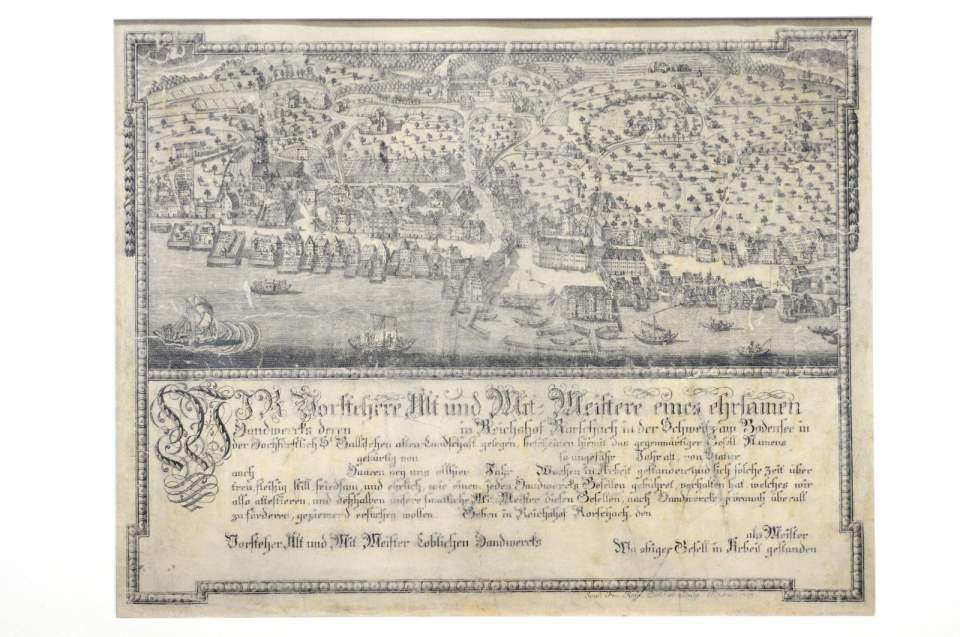 WIR Vorstehere Alt und Mit-Meistere eines ehrsamen
Handwercks deren in Reichshof Rorschach in der Schweitz am Bodensee in
der Hochfürstlich St. Gallischen alten Landschaft gelegen, bescheinen hiemit das gegenwärtiger Gesell Namens
gebürtig von so ungefähr Jahr alt, von Statur
auch Haaren bey uns allhier Jahr Wochen in Arbeit gestanden und sich solche Zeit über
treu, fleißig still, friedsam, und ehrlich, wie einem jeden Handwercks Gesellen gebühret, verhalten hat, welches wir
also attestieren, und deßhalben andere samtliche Mit-Meister diesen Gesellen, nach Handwercks gebrauch überall
zu förderen, geziemend ersuchen wollen. Geben in Reichshof Rorschach, den
als Meister
Vorsteher, Alt und Mit-Meister Loblichen Handwercks Wo obiger Gesell in Arbeit gestanden